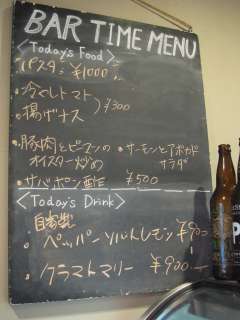 BAR TIME MENU
〈Today's Food〉
パスタ ¥1000
・冷やしトマト
・揚げナス ¥300
・豚肉とピーマンの
オイスター炒め
・サーモンとアボカド
サラダ
・サバポン酢 ¥500
〈Today's Drink〉
自家製
・ペッパーソルトレモン ¥900
・クラマトマリー ¥900